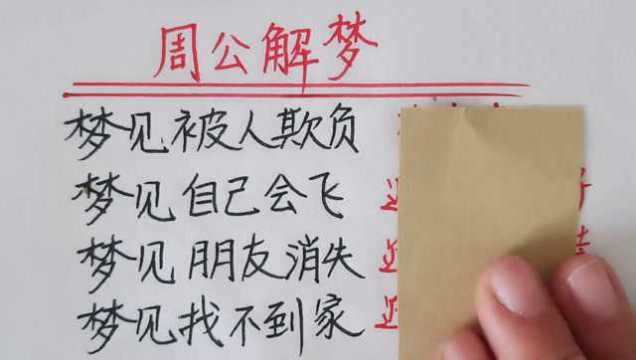 周公解梦
梦见被人欺负
梦见自己会飞
梦见朋友消失
梦见找不到家